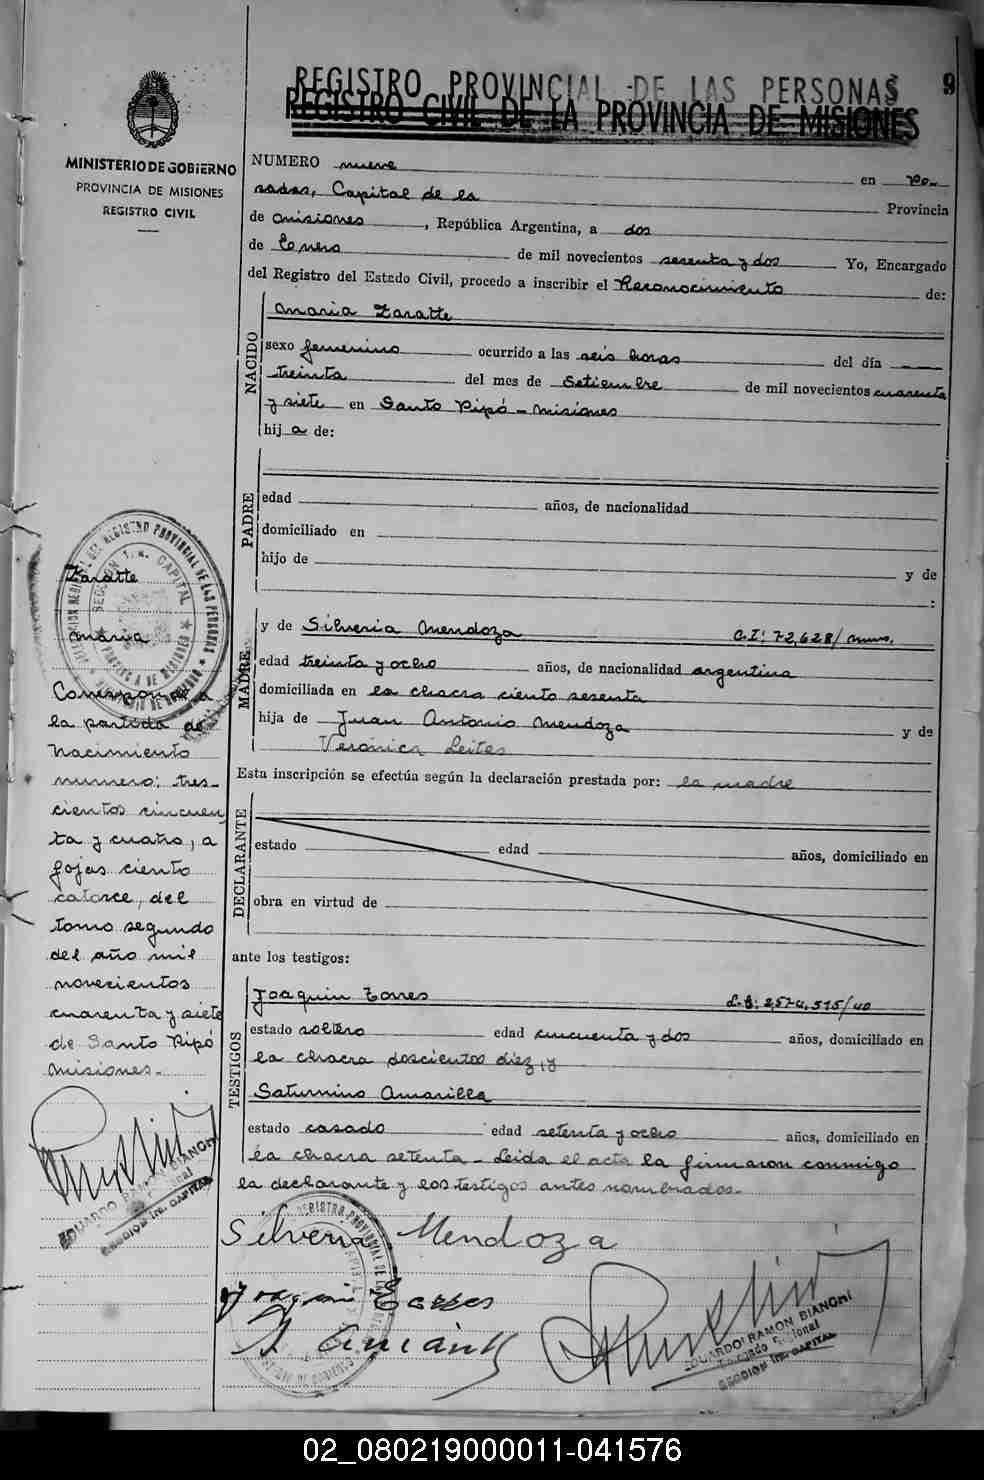 REGISTRO PROVINCIAL DE LAS PERSONAS 9
REGISTRO CIVIL DE LA PROVINCIA DE MISIONES
MINISTERIO DE GOBIERNO
PROVINCIA DE MISIONES
REGISTRO CIVIL
NUMERO nueve en Po-
sadas, Capital de la Provincia
de Misiones, República Argentina, a dos
de Enero de mil novecientos sesenta y dos Yo, Encargado
del Registro del Estado Civil, procedo a inscribir el Reconocimiento de:
NACIDO
Maria Zaratte
sexo femenino ocurrido a las seis horas del día
treinta del mes de Setiembre de mil novecientos cuarenta
y siete en Santo Pipó - Misiones
hij a de:
PADRE
edad años, de nacionalidad
domiciliado en
hijo de y de
:
MADRE
y de Silveria Mendoza C.I: 72,628/
edad treinta y ocho años, de nacionalidad argentina
domiciliada en la chacra ciento sesenta
hija de Juan Antonio Mendoza y de
Verónica Leites
Esta inscripción se efectúa según la declaración prestada por: la madre
DECLARANTE
estado edad años, domiciliado en
obra en virtud de
ante los testigos:
TESTIGOS
Joaquin Torres 2,574,515/40
estado soltero edad cincuenta y dos años, domiciliado en
la chacra doscientos diez, y
Saturnino Amarilla
estado casado edad setenta y ocho años, domiciliado en
la chacra setenta - Leida el acta la firmaron conmigo
la declarante y los testigos antes nombrados.-
Silveria Mendoza
Joaquin Torres
EDUARDO RAMON BIANCHI
SECCION 1ra. CAPITAL
Zaratte
Maria
Corresponde a
la partida de
Nacimiento
numero: tres-
cientos cincuen
ta y cuatro, a
fojas ciento
catorce, del
tomo segundo
del año mil
novecientos
cuarenta y siete
de Santo Pipó
Misiones.-
EDUARDO RAMON BIANCHI
SECCION 1ra. CAPITAL
02_080219000011-041576